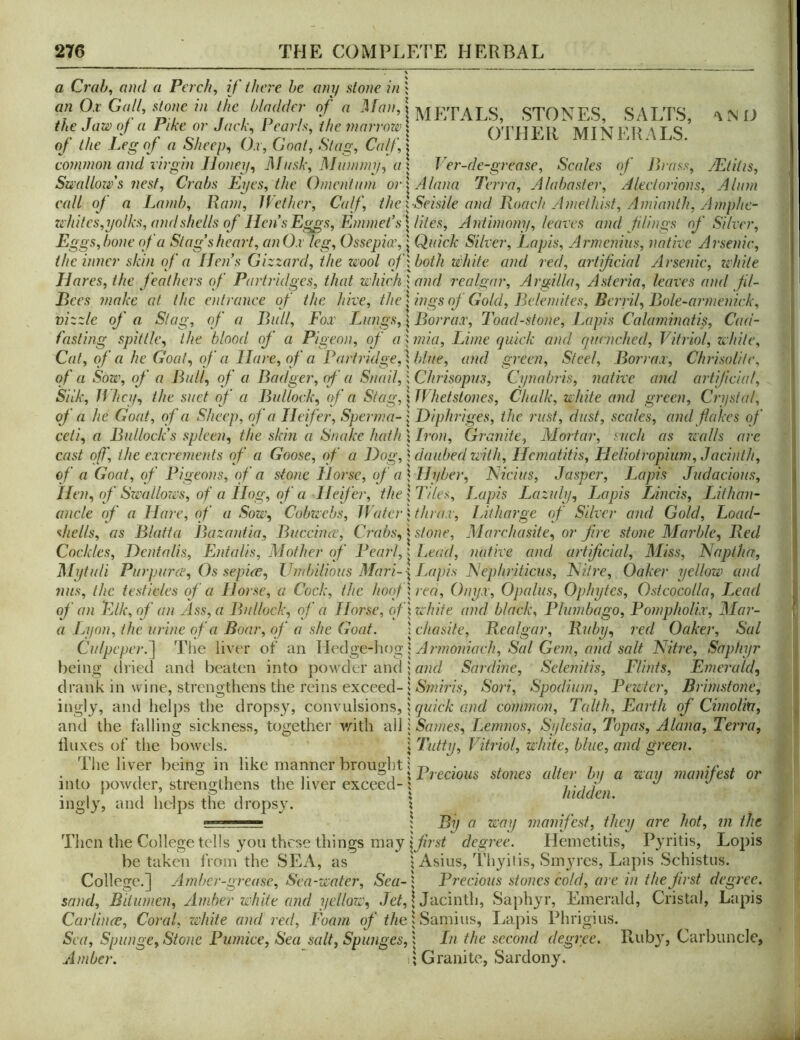 276 THE COMPLETE HERBAL
a Crab, and a Perch, if there be any stone in
an Ox Gall, stone in the bladder of a Man,
the Jaw of a Pike or Jack, Pearls, the marrow
of the Leg of a Sheep, Ox, Goat, Stag, Calf,
common and virgin Honey, Musk, Mummy, a
Swallow's nest, Crabs Eyes, the Omentum or
call of a Lamb, Ram, Wether, Calf, the
whites, yolks, and shells of Hen's Eggs, Emmet's
Eggs, bone of a Stag's heart, an Ox leg, Ossepiæ,
the inner skin of a Hen's Gizzard, the wool of
Hares, the feathers of Partridges, that which
Bees make at the entrance of the hive, the
vizzle of a Stag, of a Bull, Fox Lungs,
fasting spittle, the blood of a Pigeon, of a
Cat, of a he Goat, of a Hare, of a Partridge,
of a Sow, of a Bull, of a Badger, of a Snail,
Silk, Whey, the suet of a Bullock, of a Stag,
of a he Goat, of a Sheep, of a Heifer, Sperma-
ceti, a Bullock's spleen, the skin a Snake hath
cast off, the excrements of a Goose, of a Dog,
of a Goat, of Pigeons, of a stone Horse, of a
Hen, of Swallows, of a Hog, of a Heifer, the
ancle of a Hare, of a Sow, Cobwebs, Water
shells, as Blatta Bazantia, Buccinæ, Crabs,
Cockles, Dentalis, Entalis, Mother of Pearl,
Mytuli Purpuræ, Os sepiæ, Umbilious Mari-
nus, the testicles of a Horse, a Cock, the hoof
of an Elk, of an Ass, a Bullock, of a Horse, of
a Lyon, the urine of a Boar, of a she Goat.
Culpeper.] The liver of an Hedge-hog
being dried and beaten into powder and
drank in wine, strengthens the reins exceed-
ingly, and helps the dropsy, convulsions,
and the falling sickness, together with all
fluxes of the bowels.
The liver being in like manner brought
into powder, strengthens the liver exceed-
ingly, and helps the dropsy.
Then the College tells you these things may
be taken from the SEA, as
College.] Amber-grease, Sea-water, Sea-
sand, Bitumen, Amber white and yellow, Jet,
Carlinæ, Coral, white and red, Foam of the
Sea, Spunge, Stone Pumice, Sea salt, Spunges,
Amber.
METALS, STONES, SALTS, AND
OTHER MINERALS.
Ver-de-grease, Scales of Brass, Ætitis,
Alana Terra, Alabaster, Alectorions, Alum
Seisile and Roach Amethist, Amianth, Amphe-
lites, Antimony, leaves and filings of Silver,
Quick Silver, Lapis, Armenius, native Arsenic,
both white and red, artificial Arsenic, white
and realgar, Argilla, Asteria, leaves and fil-
ings of Gold, Belemites, Berril, Bole-armenick,
Borrax, Toad-stone, Lapis Calaminatis, Cad-
mia, Lime quick and quenched, Vitriol, white,
blue, and green, Steel, Borrax, Chrisolite,
Chrisopus, Cynabris, native and artificial,
Whetstones, Chalk, white and green, Crystal,
Diphriges, the rust, dust, scales, and flakes of
Iron, Granite, Mortar, such as walls are
daubed with, Hematitis, Heliotropium, Jacinth,
Hyber, Nicius, Jasper, Lapis Judacious,
Tiles, Lapis Lazuly, Lapis Lincis, Lithan-
thrax, Litharge of Silver and Gold, Load-
stone, Marchasite, or fire stone Marble, Red
Lead, native and artificial, Miss, Naptha,
Lapis Nephriticus, Nitre, Oaker yellow and
rea, Onyx, Opalus, Ophytes, Ostcocolla, Lead
white and black, Plumbago, Pompholix, Mar-
chasite, Realgar, Ruby, red Oaker, Sal
Armoniach, Sal Gem, and salt Nitre, Saphyr
and Sardine, Selenitis, Flints, Emerald,
Smiris, Sori, Spodium, Pewter, Brimstone,
quick and common, Talth, Earth of Cimolia,
Sames, Lemnos, Sylesia, Topas, Alana, Terra,
Tutty, Vitriol, white, blue, and green.
Precious stones alter by a way manifest or
hidden.
By a way manifest, they are hot, in the
first degree. Hemetitis, Pyritis, Lopis
Asius, Thyitis, Smyres, Lapis Schistus.
Precious stones cold, are in the first degree.
Jacinth, Saphyr, Emerald, Cristal, Lapis
Samius, Lapis Phrigius.
In the second degree. Ruby, Carbuncle,
Granite, Sardony.